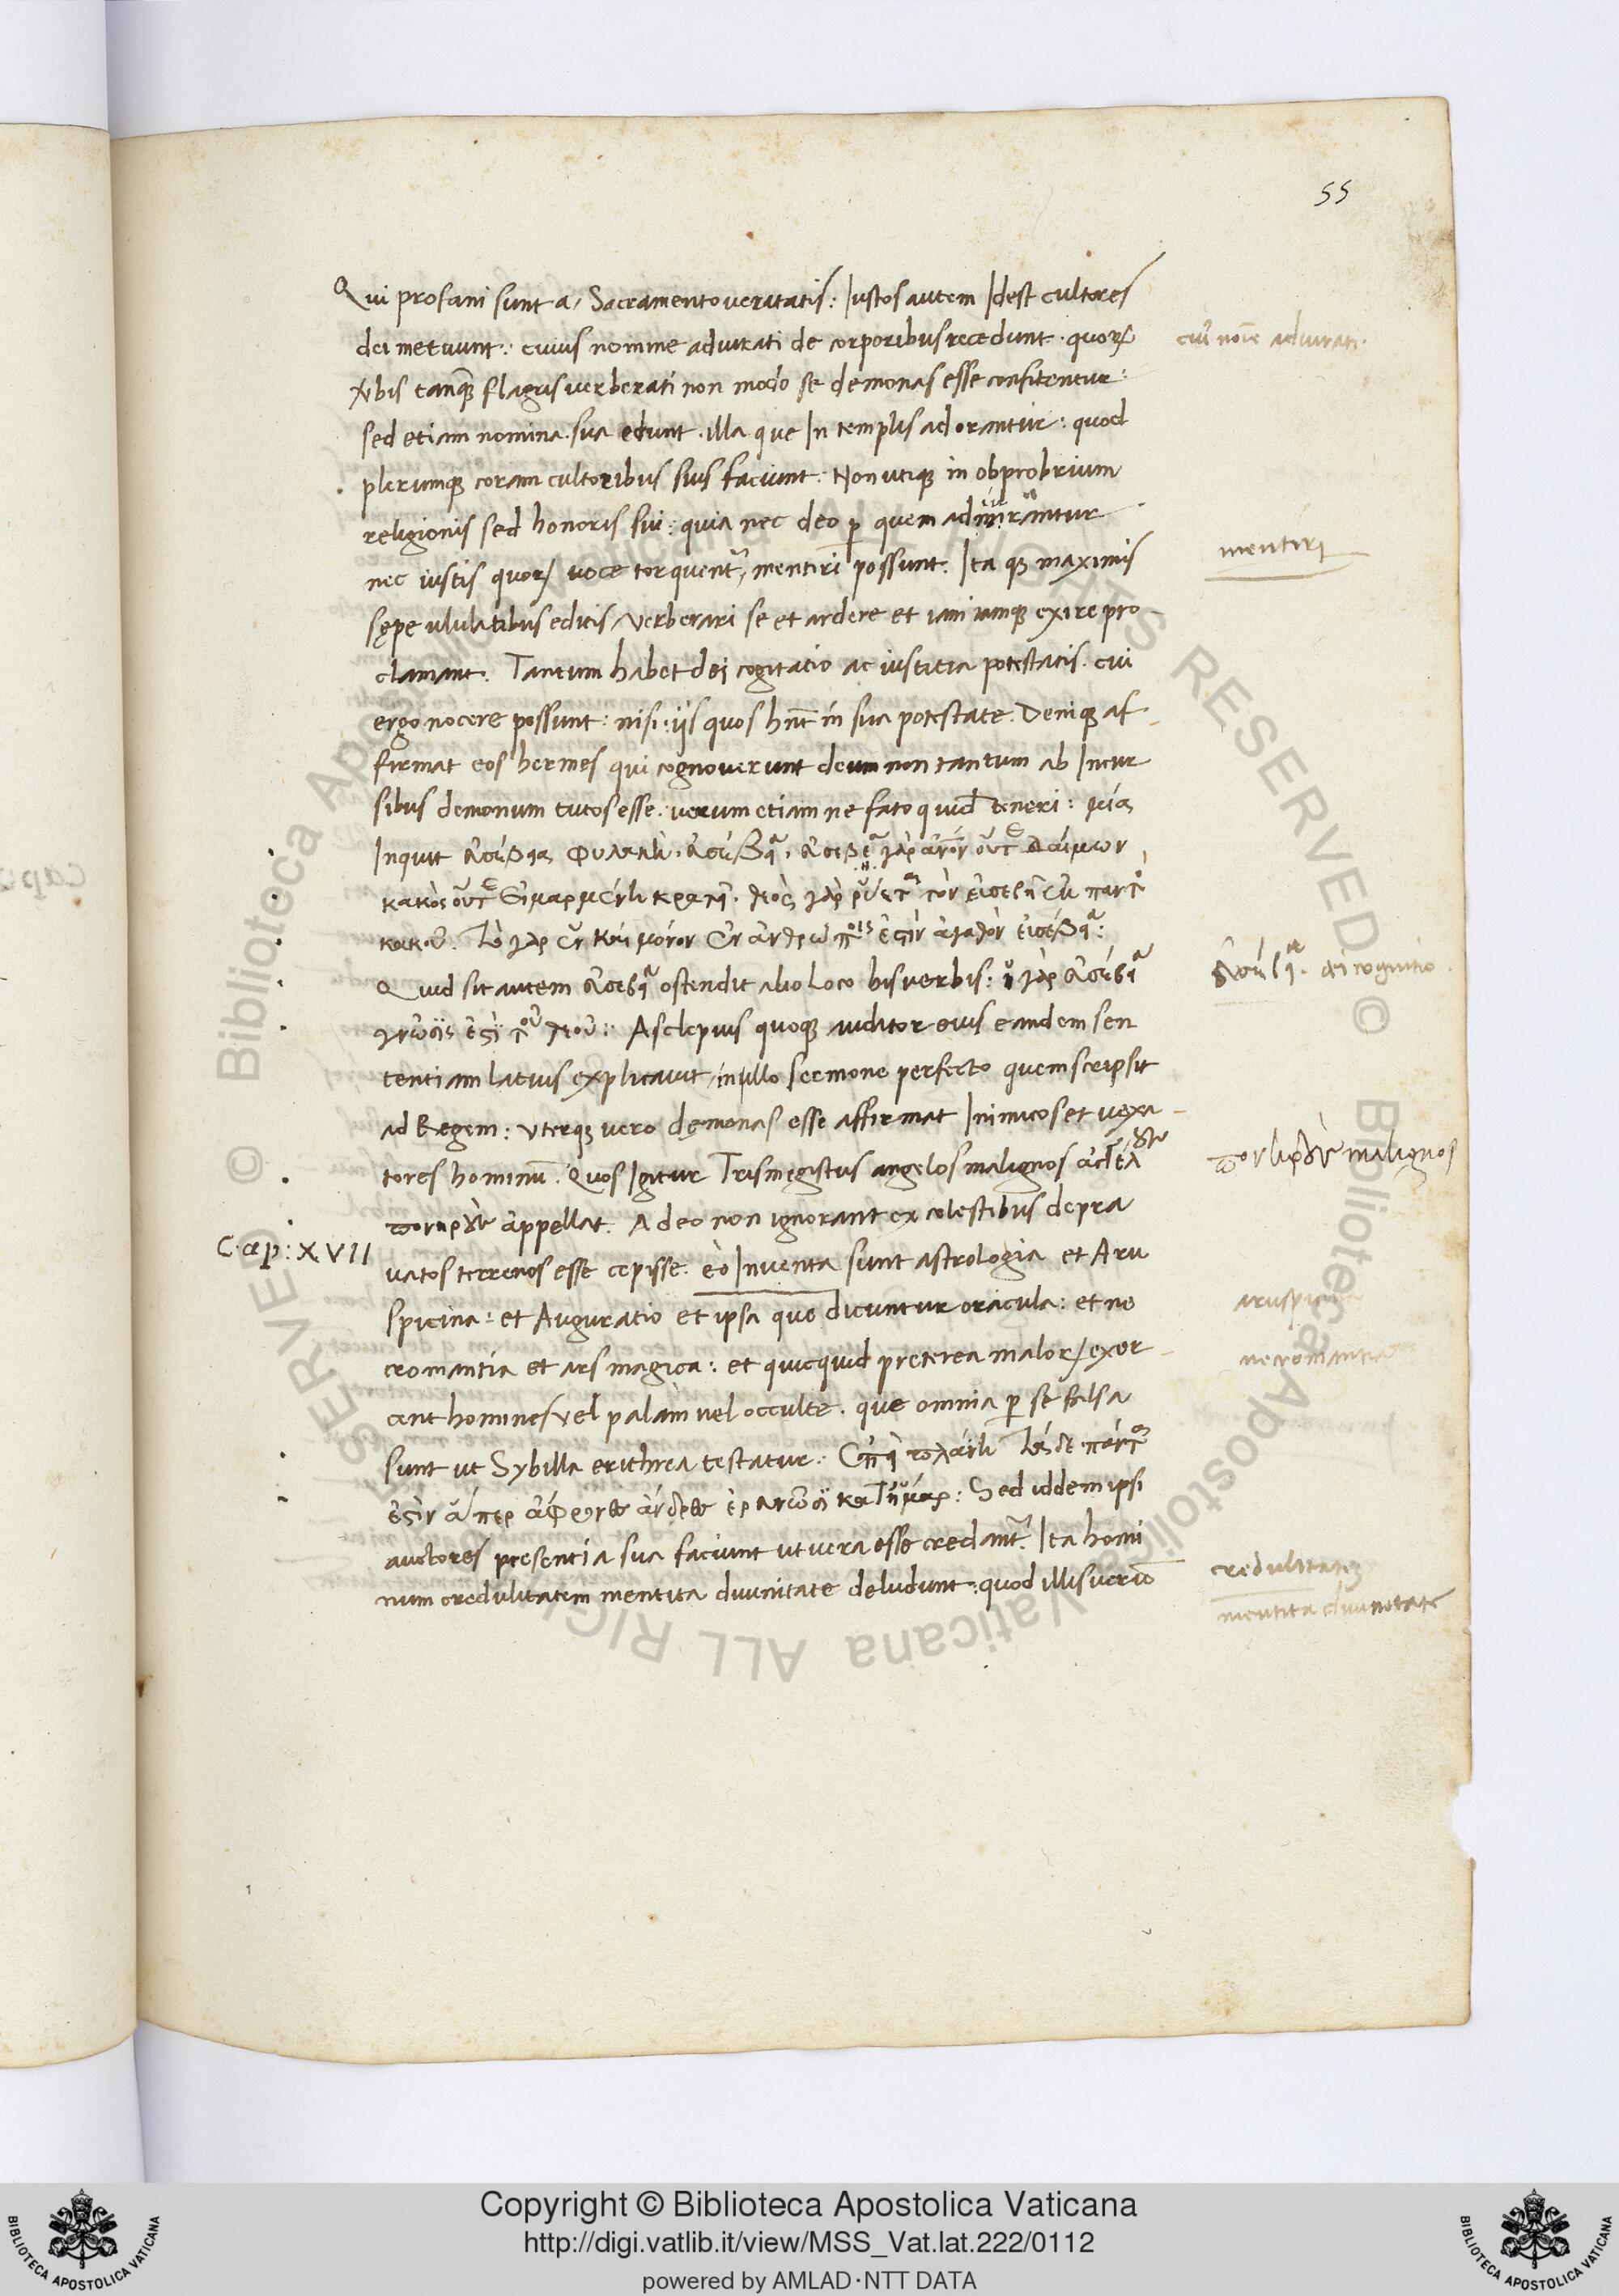 55
Qui profani sunt a, Sacramento veritatis: Iustos autem Idest cultores
dei metuunt: cuius nomine adiurati de corporibus recedunt. quorꝝ
v̄bis tanq̄ȝ flagris verberati non modo se demonas esse confitentur:
sed etiam nomina sua edunt. illa que In templis adorantur: quod
plerumqȝ coram cultoribus suis faciunt: Non utiqȝ in obprobrium
religionis sed honoris sui: quia nec deo p̱ quem adiurantur
nec iustis quorꝝ uoce torquent᷑, mentiri possunt. Ita qȝ maximis
sępe ululatibus editis, verberari se et ardere et iam iamqȝ exire pro-
clamant. Tantum habet dei cogitatio ac iustitia potestatis. cui
ergo nocere possunt: nisi: ijs quos hn̄t in sua potestate. Deniqȝ af-
firmat eos hermes qui cognoverunt deum non tantum ab Incur
sibus demonum tutos esse. verum etiam ne fato quid̄ teneri: μία
Inquit φυλακὴ. δαίμων
κακὸς
κακοῦ. Τὸ γὰρ ἓν καὶ μόνον ἐν ἀνθρώποις ἐστὶν ἀγαθὸν εὐσέβεια:
Quid sit autem ευσεβεια ostendit alio loco bis verbis: ἡ γὰρ εὐσέβεια
γνῶσίς ἐστι τοῦ θεοῦ: Asclepius quoqȝ auditor eius eandem sen
tentiam latius explicauit, in illo sermone perfecto quem scripsit
ad Regem: uterqȝ vero dęmonas esse affirmat Inimicos et uexa-
tores hominū. Quos Igitur Trismegistus angelos malignos ἀγγέλους
πονηροὺς appellat. Adeo non ignorant ex celestibus depra
Cap: XVII
vatos terrenos esse cepisse. eò Inventa sunt astrologia et Aru
spicina: et Auguratio et ipsa que dicuntur oracula: et ne
cromantia et ars magica: et quicquid preterea malorꝝ exer-
cent homines vel palàm vel occulte. que omnia p̱ se falsa
sunt ut Sybilla erithrea testatur: πλάνη τάδε πάντα
ἐστὶν
auctores presentia sua faciunt ut vera esse credant᷑. Ita homi
num credulitatem mentita diuinitate deludunt: quod illis uerū
cui᷒ noīe adiurati.
mentiri
dei cognitio.
πονηροὺς malignos
aruspicina
necromantia
credulitatem
mentita diuinitate
Copyright © Biblioteca Apostolica Vaticana
http://digi.vatlib.it/view/MSS_Vat.lat.222/0112
powered by AMLAD·NTT DATA
BIBLIOTECA APOSTOLICA VATICANA
BIBLIOTECA APOSTOLICA VATICANA
© Biblioteca Apostolica Vaticana ALL RIGHTS RESERVED © Biblioteca Apostolica Vaticana ALL RIGHTS RESERVED